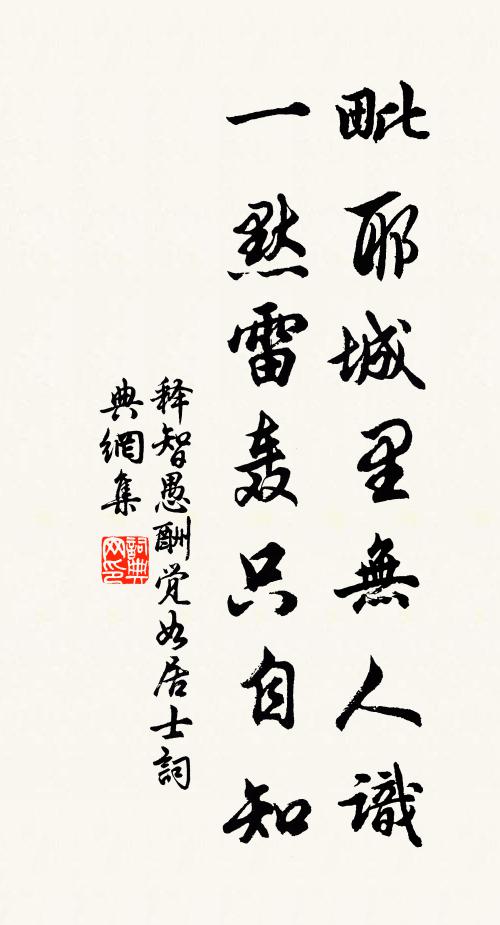 毗耶城里無人識
一默雷轰只自知
释智愚酬觉如居士詞
典網集
詞典
网印